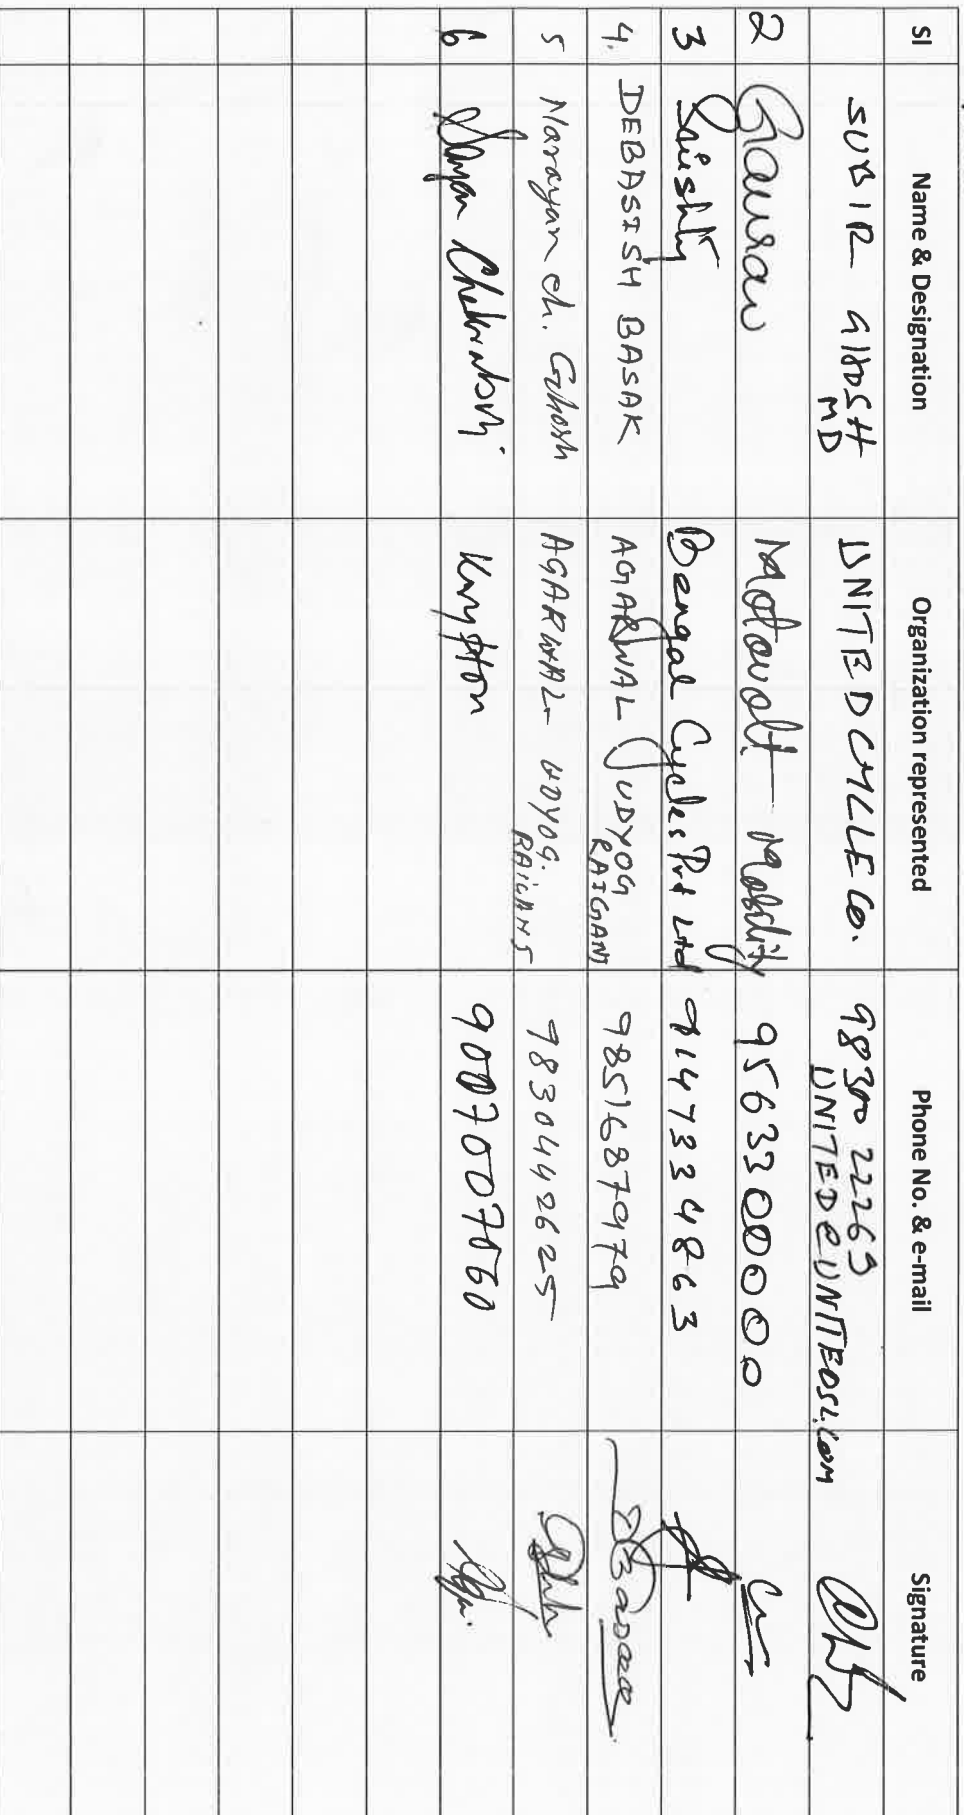 SI Name & Designation Organization represented Phone No. & e-mail Signature
SUBIR GHOSH MD UNITED CYCLE CO. 98300 22269 UNITED@UNITEDSL.COM
2 Gaurav Motovolt Mobility 9563300000
3 Bengal Cycles Pvt Ltd 9147334863
4. DEBASISH BASAK AGARWAL UDYOG RAIGANJ 9851687979 DBasak
5 Narayan ch. Ghosh AGARWAL UDYOG. RAIGANJ 9830442625
6 Sayan Chakraborty Krypton 9007007060